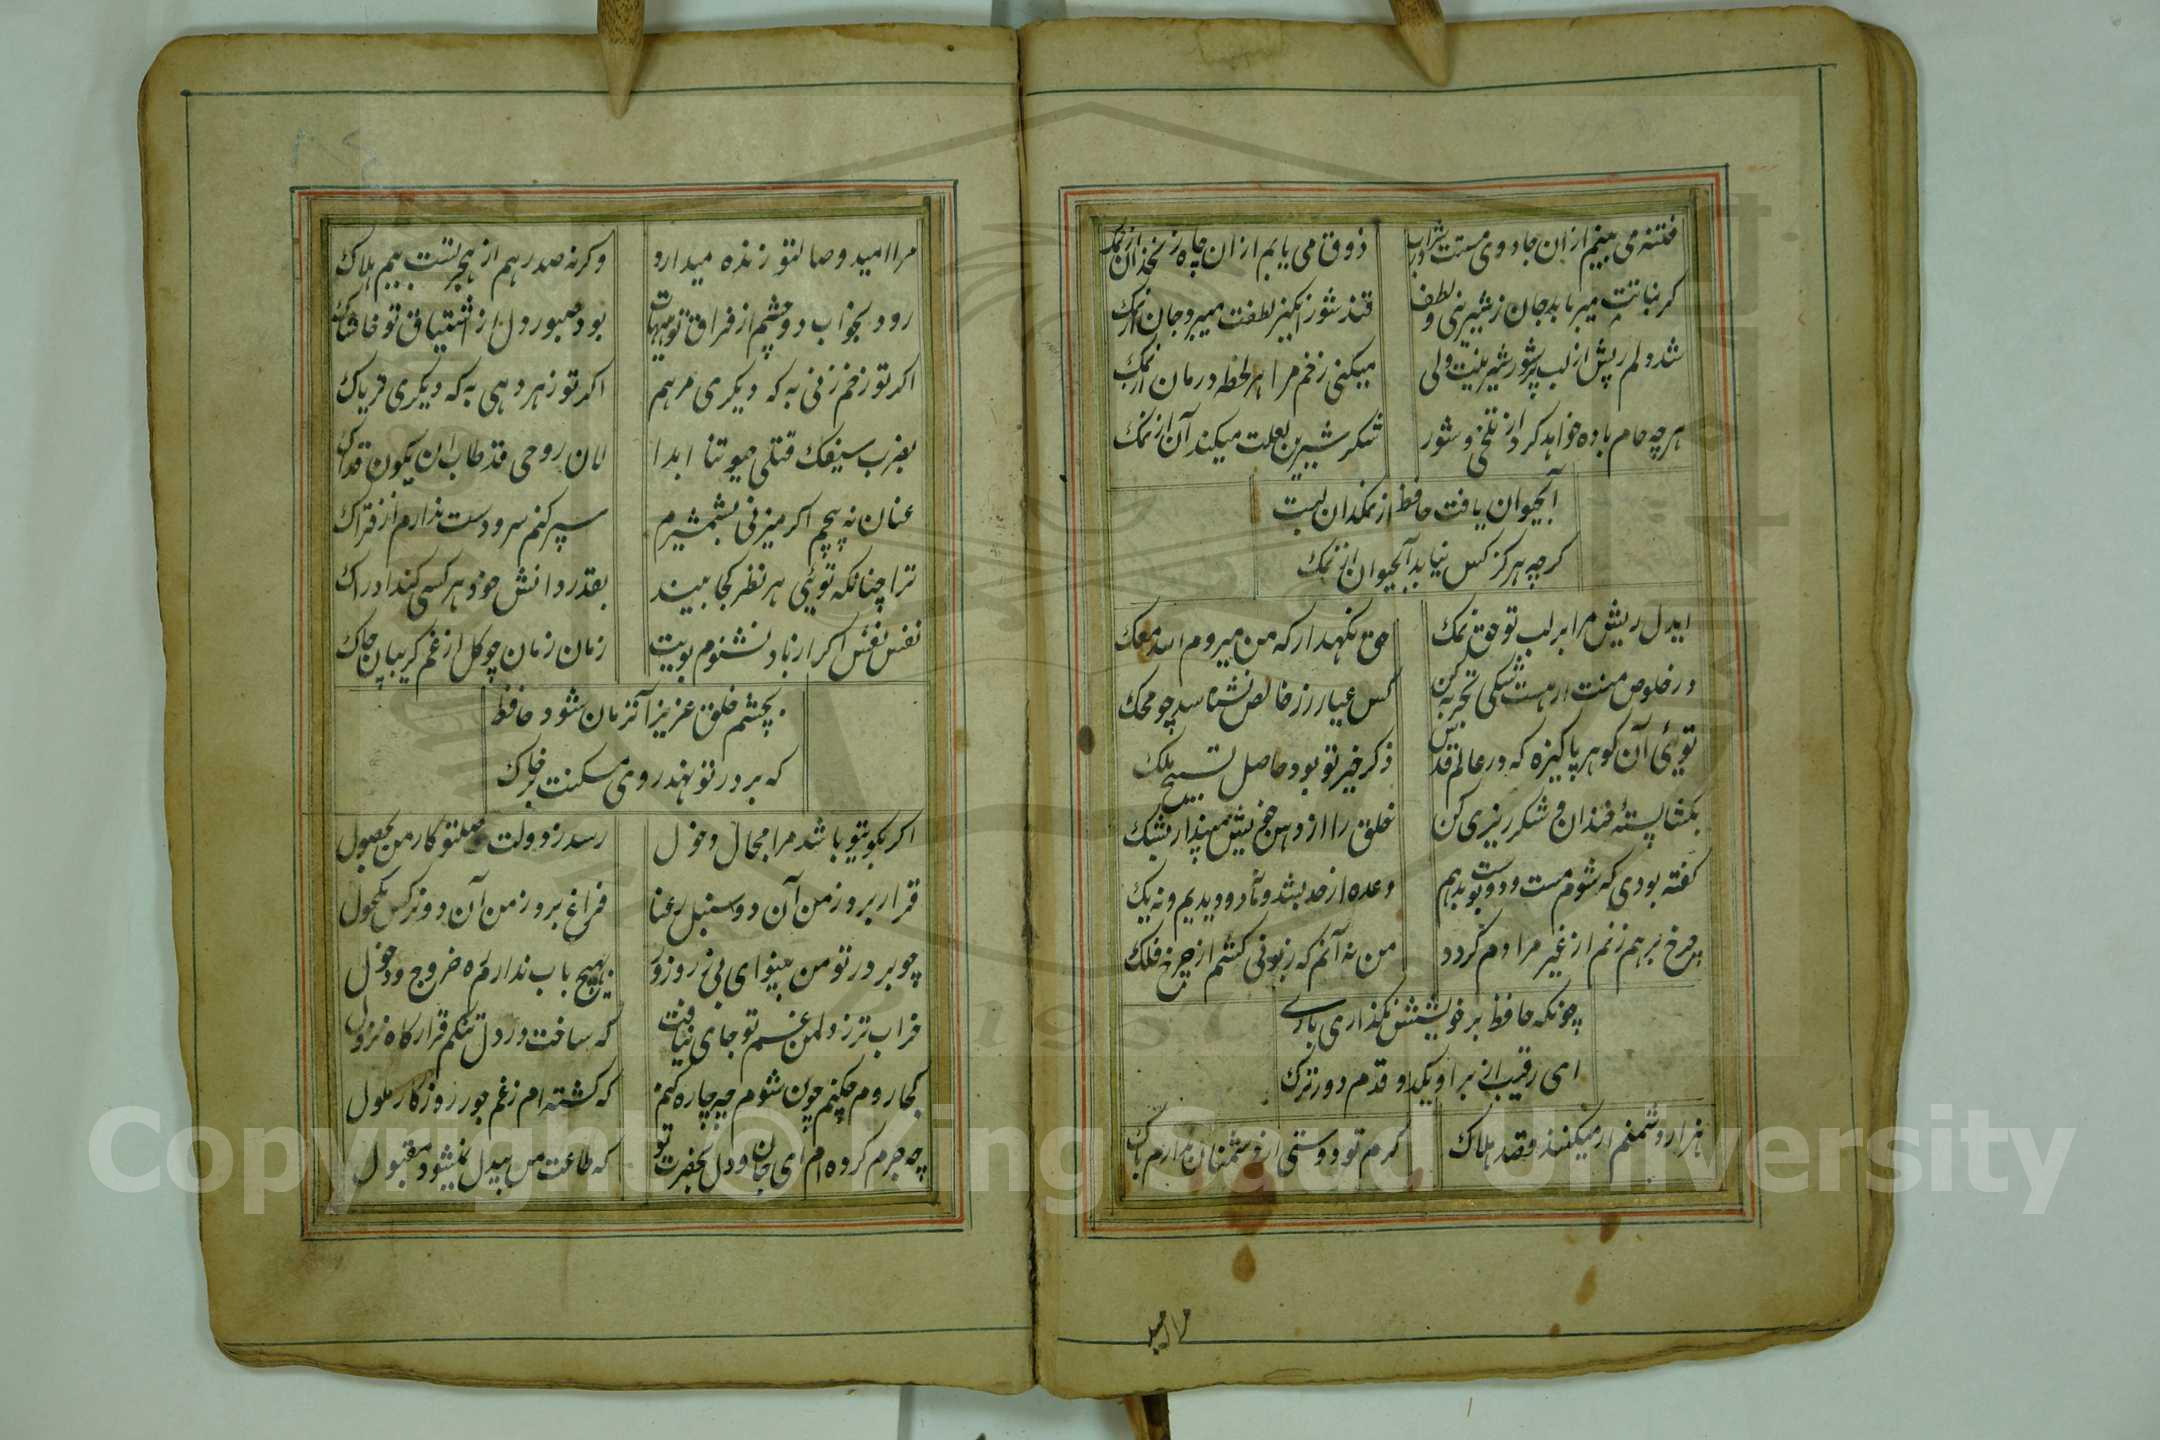 فتنه می بینم ازان جادوی مست شراب ذوق می یابم ازان چاه زنخدان نمک
شد دلم ریش از لب پرشور شیرینت ولی میکنی زخم مرا هر لحظه درمان از نمک
هرچه جام باده خواهد کرد از تلخی و شور شکر شیرین لعلت میکند آن از نمک
آبحیوان یافت حافظ از نمکدان لبت
کرچه هرکز کس نیابد آبحیوان از نمک
ایدل ریش مرا بر لب تو حق نمک حق نکهدار که من میروم الله معک
در خلوص منت ار هست شکی تجربه کن کس عیار زر خالص نشناسد چو محک
تویی آن کوهر پاکیزه که در عالم قدس ذکر خیر تو بود حاصل تسبیح ملک
بکشا پسته خندان و شکر ریزی کن خلق را از دهن خویش مینداز بشک
کفته بودی که شوم مست و دو بوست بدهم وعده از حد بشد و ما دو دیدیم و نه یک
چرخ برهم زنم از غیر مرادم کردد من نه آنم که زبونی کشم از چرخ فلک
چونکه حافظ بر خویشش نکذاری باری
ای رقیب از بر او یکدو قدم دورترک
هزار دشمنم ار میکنند قصد هلاک کرم تو دوستی از دشمنان ندارم باک
مرا امید
مرا امید وصالتو زنده میدارد وکرنه صد رهم از هجر تست بیم هلاک
رود بخواب دو چشم از فراق تو هیهات بود صبور دل از اشتیاق تو حاشاک
اکر تو زخم زنی به که دیکری مرهم اکر تو زهر دهی به که دیکری تریاک
بضرب سیفک قتلی حیوتنا ابدا لان روحی قد طاب ان یکون فداک
عنان نه پیچم اکر میزنی بشمشیرم سپر کنم سر و دست ندارم از فتراک
ترا چنانکه تویی هر نظر کجا بیند بقدر دانش خود هر کسی کند ادراک
نفس نفس اکر از باد نشنوم بویت زمان زمان چو کل از غم کریبان چاک
بچشم خلق عزیز آنزمان شود حافظ
که بر در تو نهد روی مسکنت بر خاک
اکر بکویتو باشد مرا مجال وخول رسد ز دولت وصلتو کار من بحصول
قرار برد ز من آن دو سنبل رعنا فراغ برد ز من آن دو نرکس مکحول
چو بر در تو من بینوای بی زر و زور بهیچ باب ندارم ره خروج و دخول
خراب تر ز دل من غم تو جای نیافت که ساخت در دل تنکم قرار کاه نزول
کجا روم چکنم چون شوم چه چاره کنم که کشته ام ز غم جور روزکار ملول
چه جرم کرده ام ای جان و دل بحضرت تو که طاعت من بیدل نمیشود مقبول
Copyright © King Saud University